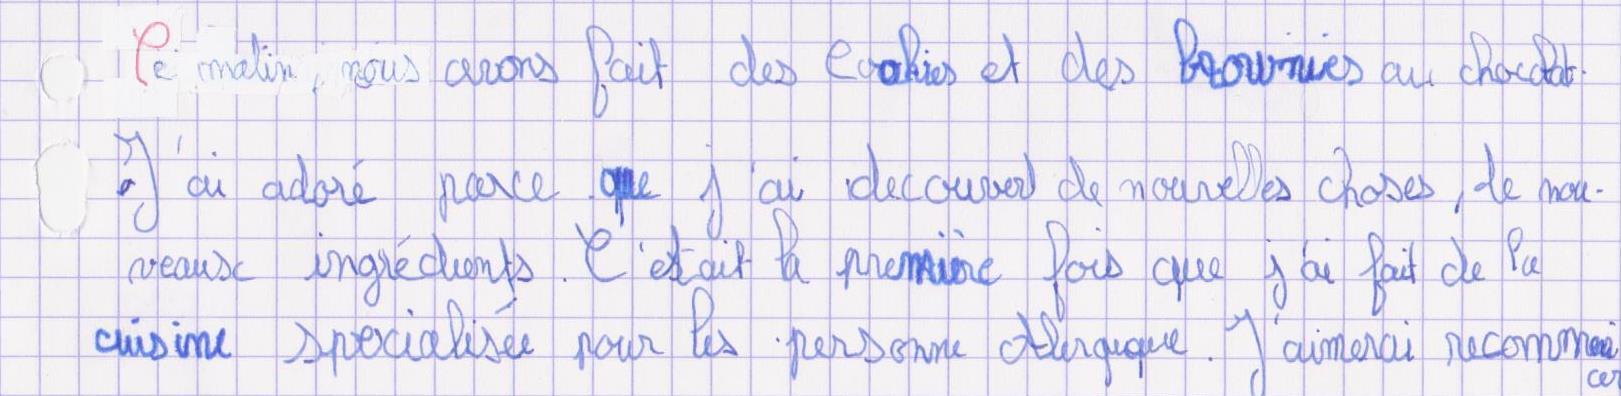 Ce matin, nous avons fait des cookies et des brownies au chocolat.
J'ai adoré parce que j'ai decouvert de nouvelles choses, de nou-
veaux ingrédients. C'était la première fois que j'ai fait de la
cuisine specialisée pour les personne allergique. J'aimerai recommen
cer